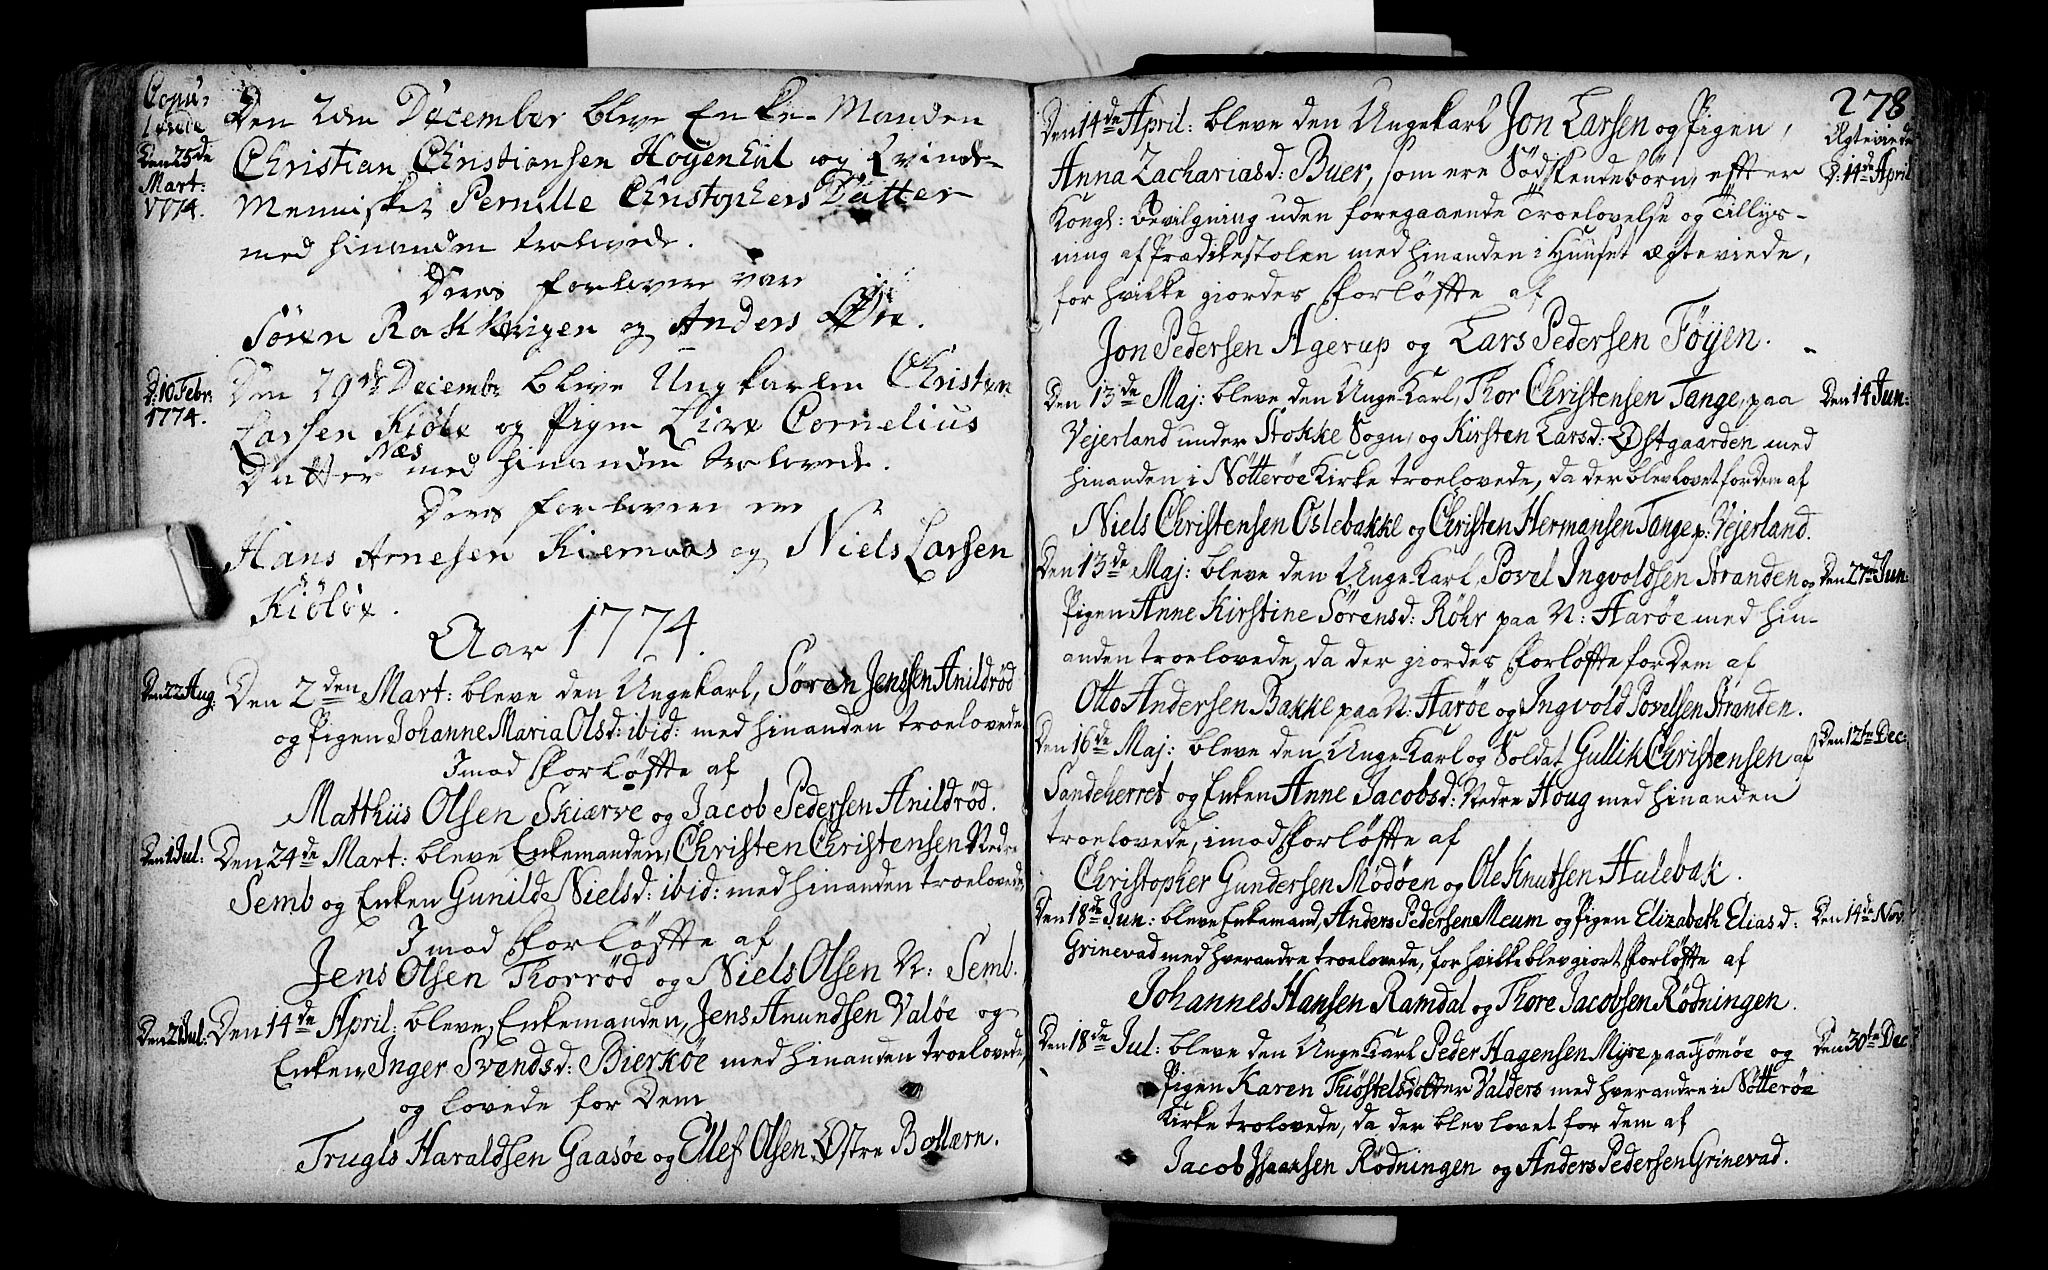 Copu-
lerede
Den 25de
Mart:
1774.
Den 2den December bleve Enke-Manden
Christian Christiansen Hoyenhul og Qvinde-
Mennisket Pernille Christophers Datter
med hinanden trolovede.
Deres forlovere var
Sören Rakkevigen og Anders Öen.
D: 10 Febr:
1774.
Den 29de Decembr bleve Ungkarlen Christen
Larsen Kiöle og Pigen Live Cornelius
Næs
Datter med hinanden trolovede.
Deres forlovere ere
Hans Arnesen Kiernaas og Niels Larsen
Kiöløe.
Aar 1774.
Den 22 Aug. Den 2den Mart: bleve den Ungekarl, Sören Jenssen Anildröd
og Pigen Johanne Maria Olsd: ibid: med hinanden troelovede
Imod Forløfte af
Matthiis Olsen Skiærve og Jacob Pedersen Anildröd.
Den 1 Jul: Den 24de Mart: bleve Enkemanden, Christen Christensen Nedre
Semb og Enken Gunild Nielsd: ibid: med hinanden troelovede
Imod Forløfte af
Jens Olsen Thorröd og Niels Olsen N: Semb.
Den 21 Jul: Den 14de April: bleve, Enkemanden, Jens Anundsen Valöe og
Enken, Inger Svendsd: Bierköe med hinanden troelovede,
og lovede for Dem
Trugls Haraldsen Gaasöe og Ellef Olsen Østre Bollærn.
278
Den 14de April: bleve den Ungekarl Jon Larsen og Pigen, Ægteviede
Anna Zachariasd: Buer, som ere Södskendebörn, efter D: 14de April
Kongl: Bevilgning uden foregaaende Troelovelse og Tillys-
ning af Prædikestolen med hinanden i Huuset ægteviede,
for hvilke giordes Forløfte af
Jon Pedersen Agerup og Lars Pedersen Föyen.
Den 13de Maj: bleve den Unge Karl, Thor Christensen Tange, paa Den 14 Jun:
Vejerland under Stokke Sogn, og Kirsten Larsd: Østgaarden med
hinanden i Nötteröe Kirke troelovede, da der blev lovet for dem af
Niels Christensen Oslebakke og Christen Hermansen Tange p: Vejerland.
Den 13de Maj: bleve den Unge Karl, Povel Ingvoldsen Stranden og Den 27de Jun:
Pigen Anne Kirstine Sörensd: Röhr paa N: Haröe med hin-
anden troelovede, da der giordes Forløfte for Dem af
Otto Andersen Bakke paa N: Haröe og Ingvold Povelsen Stranden.
Den 16de Maj: bleve den Unge Karl og Soldat Gullik Christensen af Den 12te Dec:
Sandeherret og Enken Anne Jacobsd: Nedre Houg med hinanden
troelovede, imod Forløfte af
Christopher Gundersen Mödöen og Ole Knutsen Hulebak.
Den 18de Jun: bleve Enkemand, Anders Pedersen Meum og Pigen Elizabeth Eliasd: Den 14de Nov:
Grinevad med hverandre troelovede, for hvilke blev giort Forløfte af
Johannes Hansen Ramdal og Thore Jacobsen Rödningen.
Den 18de Jul: bleve den Unge Karl Peder Hagensen Myre, paa Tjömöe og Den 30te Dec
Pigen Karen Thiöstelsdotter Valders med hverandre i Nötteröe
Kirke trolovede, da der blev lovet for dem af
Jacob Isaaksen Rödningen og Anders Pedersen Grinevad.